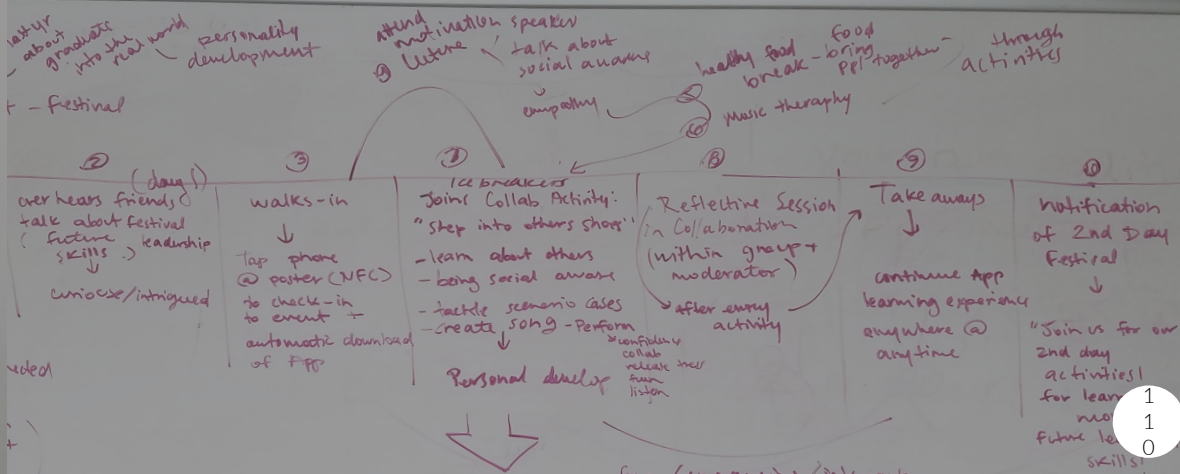 about
graduate
into the
real world
personality
development
+ - Festival
attend
motivation speaker
talk about
social
empathy
healthy food
break - bring
food
ppl together
through
activities
music theraphy
2
(day 1)
over hears friends
talk about festival
(future leadership
skills.)
3
walks-in
Tap phone
@ poster (NFC)
to check-in
to event +
automatic download
of App
7
Ice breakers
Joins Collab Activity:
"Step into others shoes"
- learn about others
- being social aware
- tactile scenario cases
- create song - Perform
collab
fun
listen
Personal develop
8
Reflective Session
in Collaboration
(within group +
moderator)
after every
activity
9
Take aways
continue App
learning experience
anywhere @
anytime
notification
of 2nd Day
Festival
"Join us for our
2nd day
activities!
for
future
skills!
110